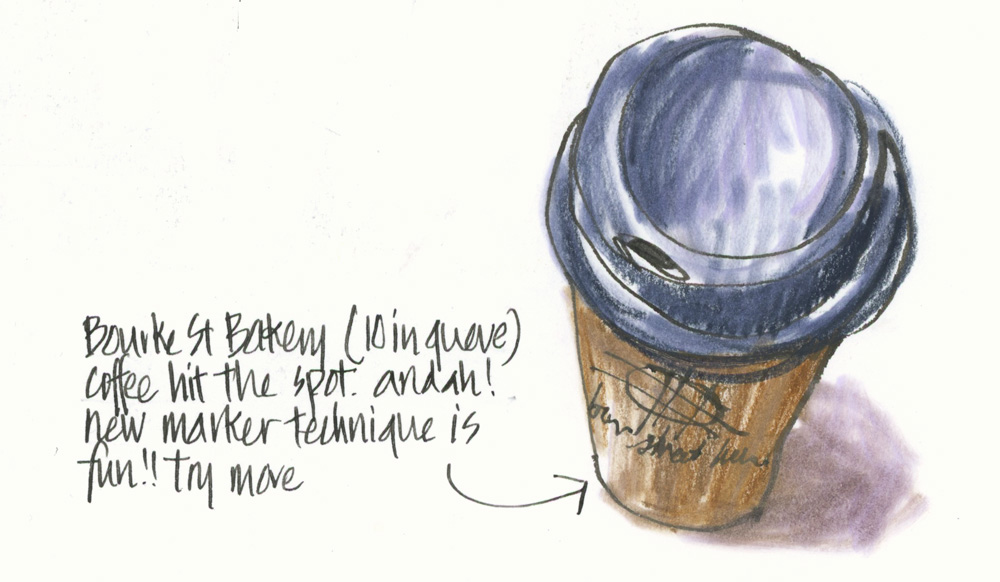 Bourke St Bakery (10 in queue)
coffee hit the spot. and ah!
new marker technique is
fun!! try more